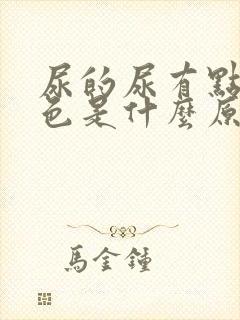 尿的尿有點
色是什麼原
馬金鍾